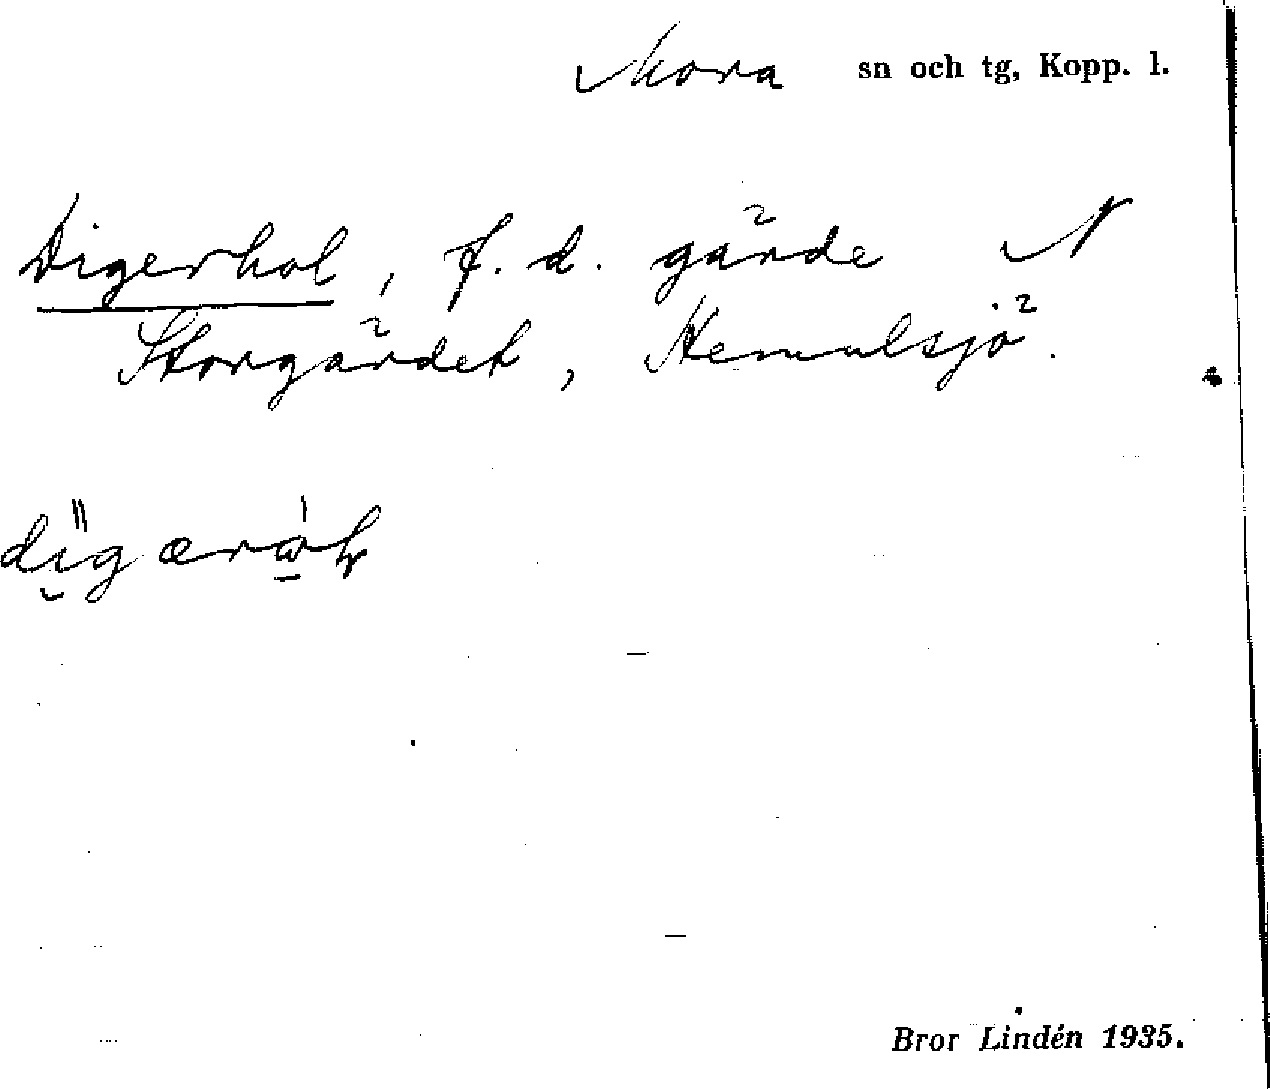 Mora sn och tg, Kopp. l.
Digerhol, f. d. gärde N
Storgärdet, Hemulsjö.
Bror Lindén 1935.